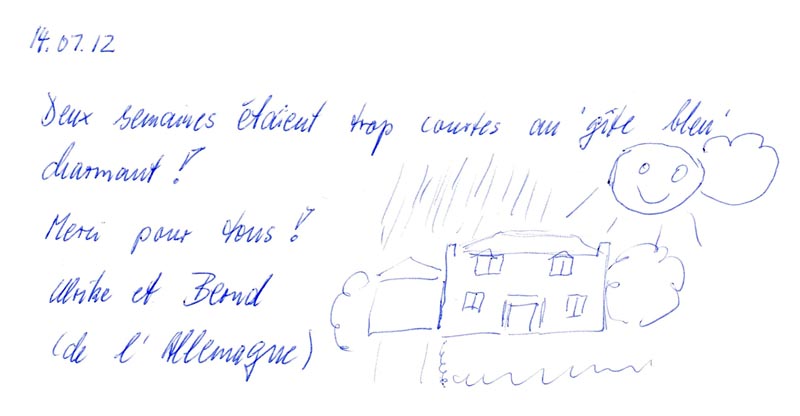 14.07.12
Deux semaines étaient trop courtes au 'gîte bleu'
charmant !
Merci pour tous !
Ulrike et Bernd
(de l'Allemagne)